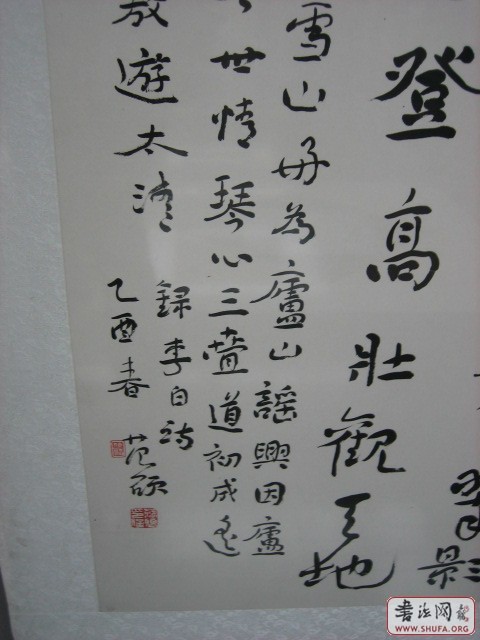 翠影
登高壯觀天地
雪山好為廬山謠興因廬
世情琴心三疊道初成遙
敖遊太清
錄李白詩
乙酉春
范碩
書法网
WWW.SHUFA.ORG